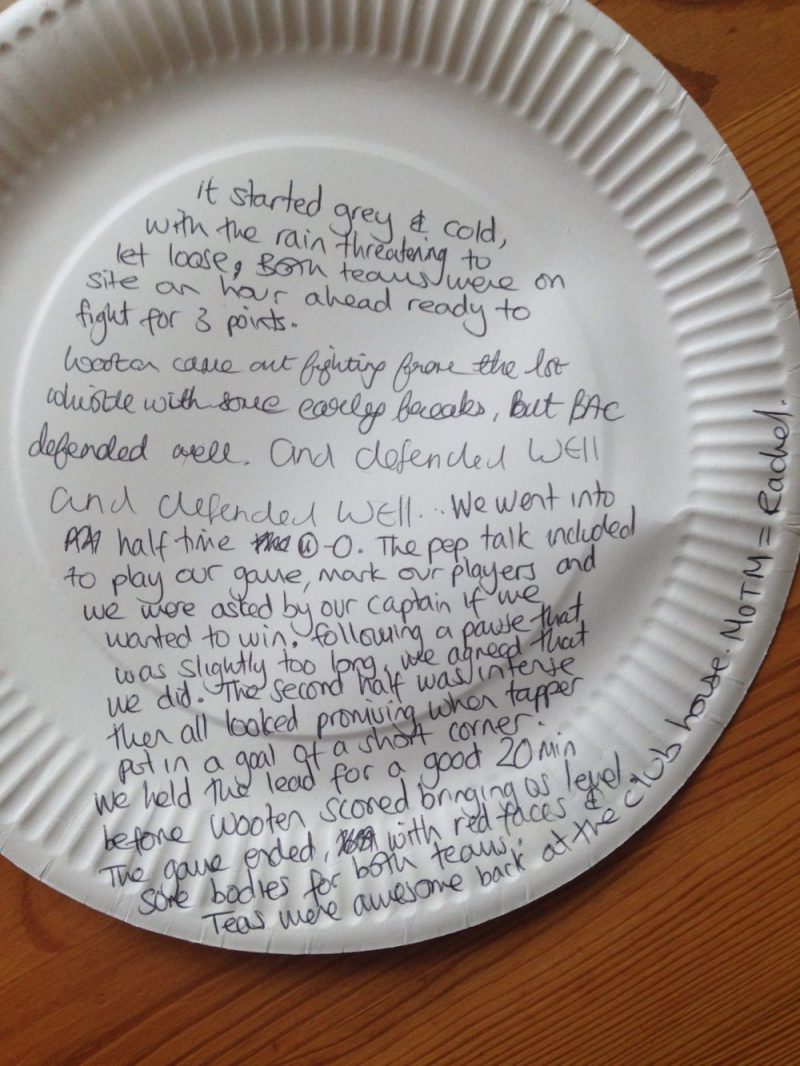 it started grey & cold,
with the rain threatening to
let loose, Both teams were on
site an hour ahead ready to
fight for 3 points.
Wooten came out fighting from the 1st
whistle with some early breaks, But BAC
defended well. And defended WEll
and defended WEll... We went into
half time 0-0. The pep talk included
to play our game, mark our players and
we were asked by our captain if we
wanted to win. following a pause that
was slightly too long, we agreed that
we did. The second half was intense
then all looked promising when tapper
put in a goal at a short corner.
We held the lead for a good 20 min
before wooten scored bringing as level.
The game ended, with red faces &
sore bodies for both teams.
Teas were awesome back at the club house. MOTM = Rachel.